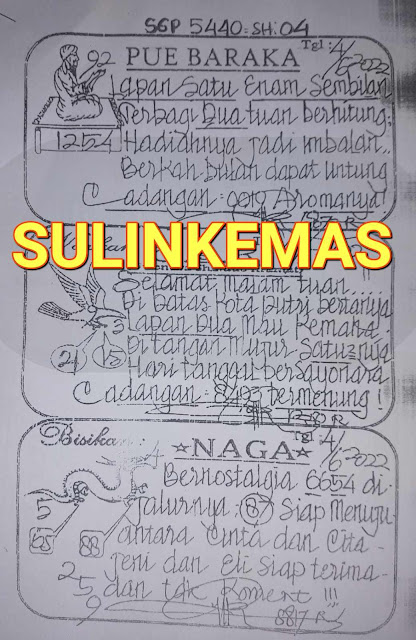 SGP 5440=SH:04
Tgl:4/6-2022
92
PUE BARAKA
Lapan Satu Enam Sembilan
Terbagi Dua tuan berhitung.
1254
Hadiahnya jadi imbalan...
Berkah bulan dapat untung
Cadangan: Aromanya!
1987 R
SULINKEMAS
Selamat malam tuan...
Di batas kota putri bertanya
Lapan Dua Mau kemana
3
Ditangan Mujur Satu2nya
21 15
Hari tanggal bersayonara
Cadangan: 8493 termenung!
1387 R
Bisikan: 4
Tgl:4/6-2022
NAGA
Bernostalgia 6654 di
5
Jalurnya 87 Siap Menuju
65 88
antara Cinta dan Cita-
2
Jeni dan Eli siap terima-
5
dan tdk Koment !!!
9
8817 R